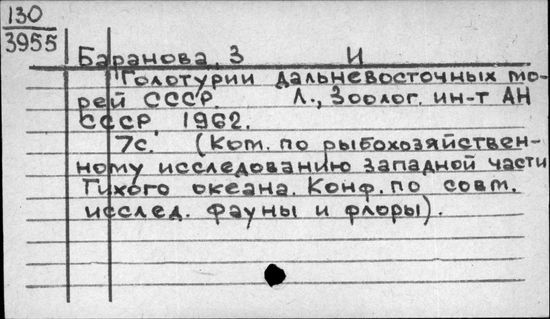 130
3955
Баранова, З И
Голотурии дальневосточных мо-
рей СССР. Л., Зоолог. ин-т АН
СССР, 1962.
7с. (Ком. по рыбохозяйствен-
ному исследованию западной части
Тихого океана. Конф. по совм.
исслед. фауны и флоры).